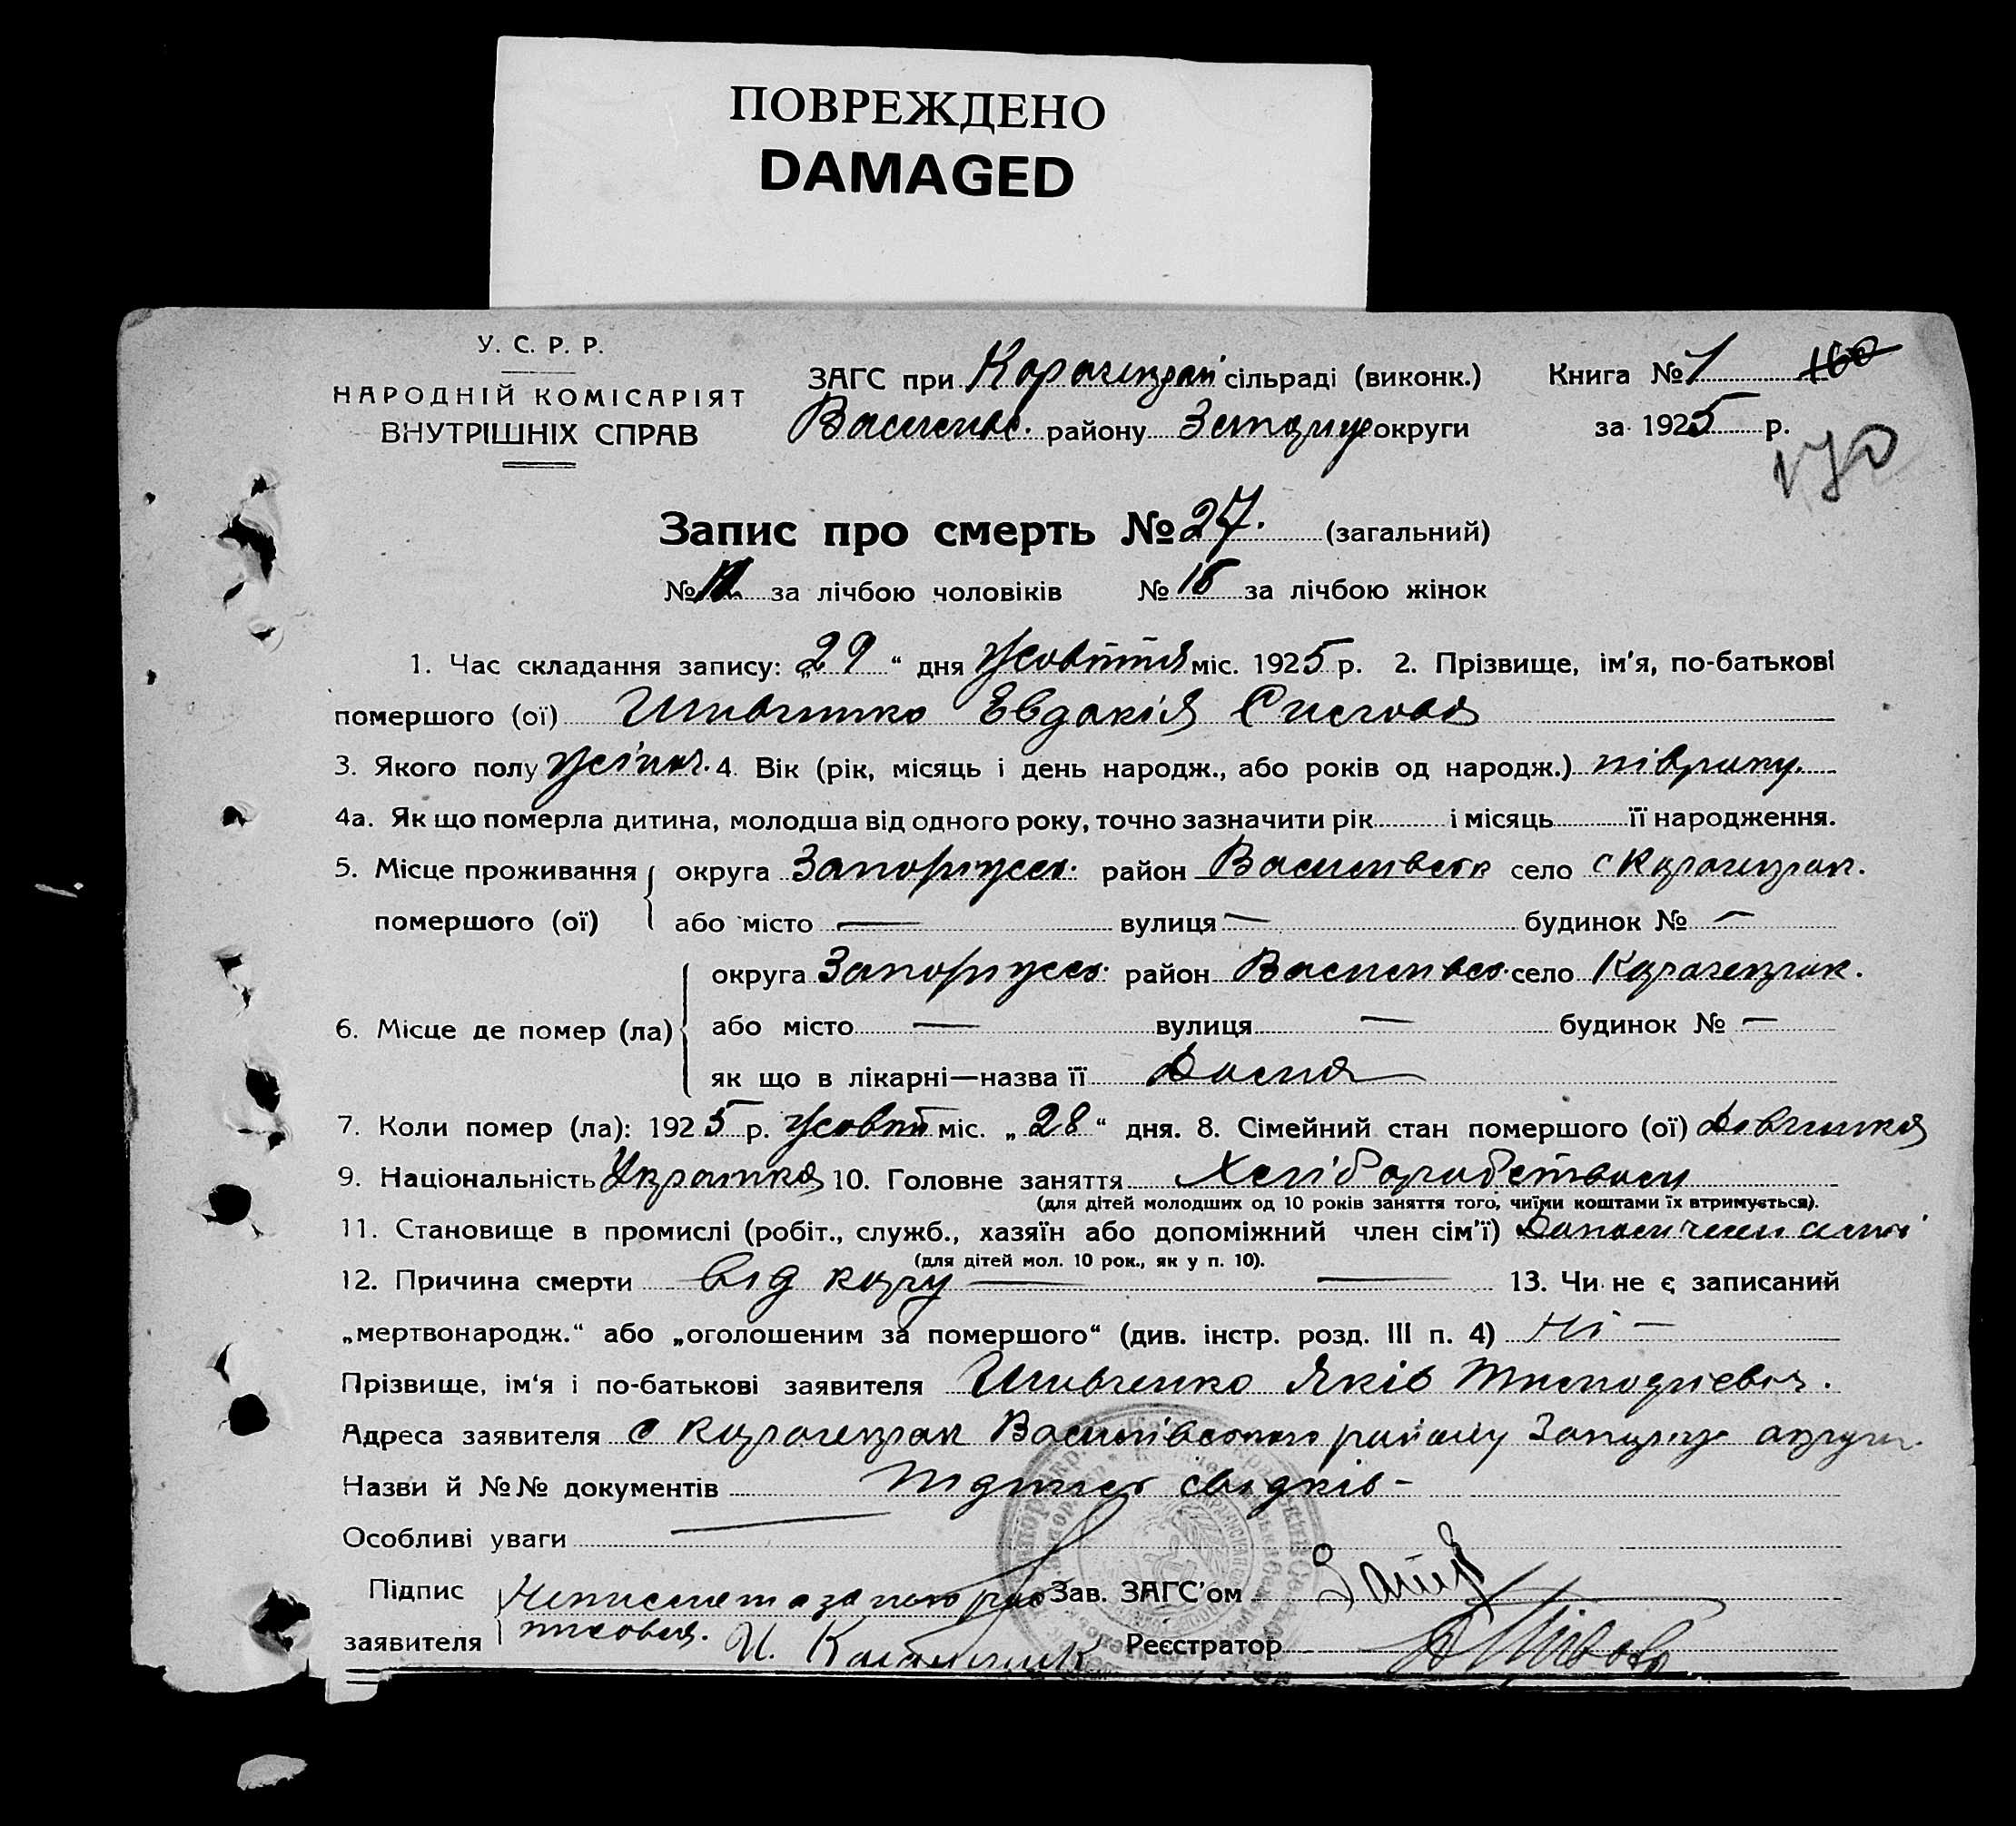 ПОВРЕЖДЕНО
DAMAGED
У. С. Р. Р.
НАРОДНІЙ КОМІСАРІЯТ
ВНУТРІШНІХ СПРАВ
ЗАГС при сільраді (виконк.) Книга № 1 160
Василівс. району округи за 1925 р.
170
Запис про смерть № 27. (загальний)
№ за лічбою чоловіків № 15 за лічбою жінок
1. Час складання запису: „29“ дня Жовтня міс. 1925 р. 2. Прізвище, ім'я, по-батькові
помершого (ої) Евдакія
3. Якого полу жіноч. 4. Вік (рік, місяць і день народж., або років од народж.) півроку.
4а. Як що померла дитина, молодша від одного року, точно зазначити рік і місяць її народження.
5. Місце проживання округа район Василівськ село с Карачекрак.
помершого (ої) або місто — вулиця — будинок № —
округа район село Карачекрак.
6. Місце де помер (ла) або місто — вулиця — будинок № —
як що в лікарні—назва її Дома
7. Коли помер (ла): 1925 р. Жовтн міс. „28“ дня. 8. Сімейний стан помершого (ої) Девчинка
9. Національність Украинка 10. Головне заняття Хліборобством
(для дітей молодших од 10 років заняття того, чиїми коштами їх втримується).
11. Становище в промислі (робіт., служб., хазяїн або допоміжний член сім'ї)
(для дітей мол. 10 рок., як у п. 10).
12. Причина смерти від кору — — 13. Чи не є записаний
„мертвонародж.“ або „оголошеним за помершого“ (див. інстр. розд. III п. 4) Ні —
Прізвище, ім'я і по-батькові заявителя Яків
Адреса заявителя с Карачекрак Василівського району округи.
Назви й №№ документів свідків -
Особливі уваги
Підпис Зав. ЗАГС'ом
заявителя Реєстратор